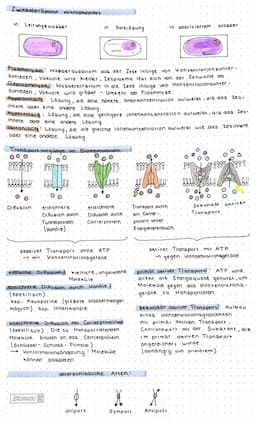 Zwiebelepidermis mikroskopiert
in Leitungswasser
in Salzlösung
in destilliertem Wasser
Plasmolyse: Wasserausstrom aus der Zelle infolge von Konzentrationsunter-
schieden, Vakuole wird kleiner, Zellplasma löst sich von der Zellwand ab
Deplasmolyse: Wassereinstrom in die Zelle infolge von Konzentrationsunter-
schieden, Vakuole wird größer → Umkehr der Plasmolyse
Hypertonisch: Lösung, die eine höhere Ionenkonzentration aufweist, als das Zell-
innere oder eine andere Lösung
Hypotonisch: Lösung, die eine geringere Ionenkonzentration aufweist, als das Zell-
innere oder eine andere Lösung
Isotonisch: Lösung, die die gleiche Ionenkonzentration aufweist wie das Zellinnere
oder eine andere Lösung
Transportvorgänge an Biomembranen
Diffusion
erleichterte
Diffusion durch
Tunnelprotein
(Kanäle)
erleichterte
Diffusion durch
Carrierprotein
Transport durch
ein Carrier-
protein unter
Energieverbrauch
sekundär aktiver
Transport
passiver Transport ohne ATP
→ mit Konzentrationsgefälle
aktiver Transport mit ATP
→ gegen Konzentrationsgefälle
einfache Diffusion: kleinere, ungeladene
Moleküle
erleichterte Diffusion durch Kanäle:
(spezifisch)
bsp. Aquaporine (größere Wassermengen
möglich) bsp. Ionenkanäle
erleichterte Diffusion mit Carrierproteinen:
(spezifisch) Die zu transportierenden
Moleküle binden an das Carrierprotein
(Schlüssel-Schloss-Prinzip)
→ Konformationsänderung: Moleküle
können passieren
primär aktiver Transport: ATP wird
direkt als Energiequelle genutzt, um
Moleküle gegen das Konzentrations-
gefälle zu transportieren
sekundär aktiver Transport: Aufbau
eines Konzentrationsgradienten
mit primär aktivem Transport,
Cotransport mit der Substanz, die
im primär aktiven Transport
angereichert wurde
(abhängig von primärem)
unterschiedliche Arten:
Uniport
Symport
Antiport